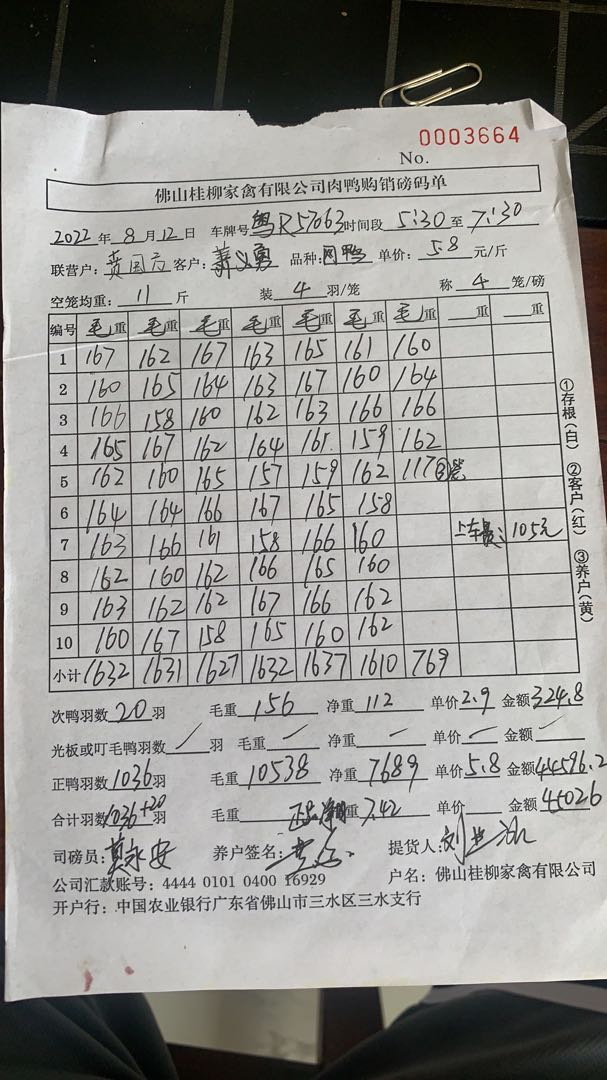 0003664
No.
佛山桂柳家禽有限公司肉鸭购销磅码单
2022 年 8 月 12 日 车牌号 粤R57063 时间段 5:30 至 7:30
联营户: 客户: 萧义勇 品种: 网鸭 单价: 5.8 元/斤
空笼均重: 11 斤 装 4 羽/笼 称 4 笼/磅
编号 毛重 毛重 毛重 毛重 毛重 毛重 毛重 重 重
1 167 162 167 163 165 161 160
2 160 165 164 163 167 160 164
3 166 158 160 162 163 166 166
4 165 167 162 164 161 159 162
5 162 160 165 157 159 162 117 ③笼
6 164 164 166 167 165 158
7 163 166 161 158 166 160 上车费: 105元
8 162 160 162 166 165 160
9 163 162 162 167 166 162
10 160 167 158 165 160 162
小计 1632 1631 1627 1632 1637 1610 769
①存根(白) ②客户(红) ③养户(黄)
次鸭羽数 20 羽 毛重 156 净重 112 单价 2.9 金额 324.8
光板或叮毛鸭羽数 / 羽 毛重 / 净重 / 单价 / 金额 /
正鸭羽数 1036 羽 毛重 10538 净重 7689 单价 5.8 金额 44596.2
合计羽数 1036+20 羽 毛重 重 7.42 单价 金额 45026
司磅员: 莫永安 养户签名: 提货人:
公司汇款账号: 4444 0101 0400 16929 户名: 佛山桂柳家禽有限公司
开户行: 中国农业银行广东省佛山市三水区三水支行